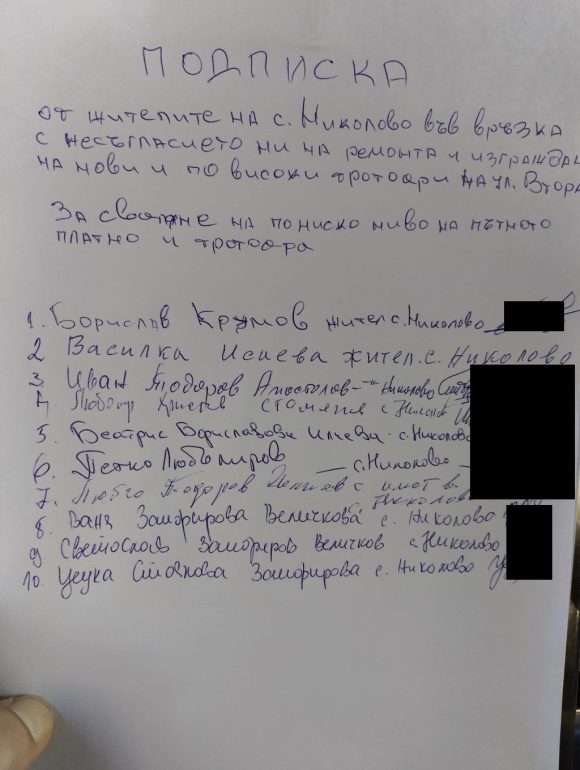 ПОДПИСКА
от жителите на с. Николово във връзка
с несъгласието ни на ремонта и изграждан
на нови и по високи тротоари на ул. Втора
За сваляне на по ниско ниво на пътното
платно и тротоара
1. Борислав Крумов жител с. Николово
2 Василка Исаева жител. с. Николово
3. Иван Тодоров Апостолов - Николово
4. Любомир Христов с. Николов
5. Беатрис Бориславова Илиева. с. Николово
6. Петко Любомиров — с. Николово —
7. Тодоров с имот в
Николово
8. Ваня Замфирова Величкова с. Николово
9. Светослав Замфиров Величков с. Николово
10. Цецка Стоянова Замфирова с. Николово